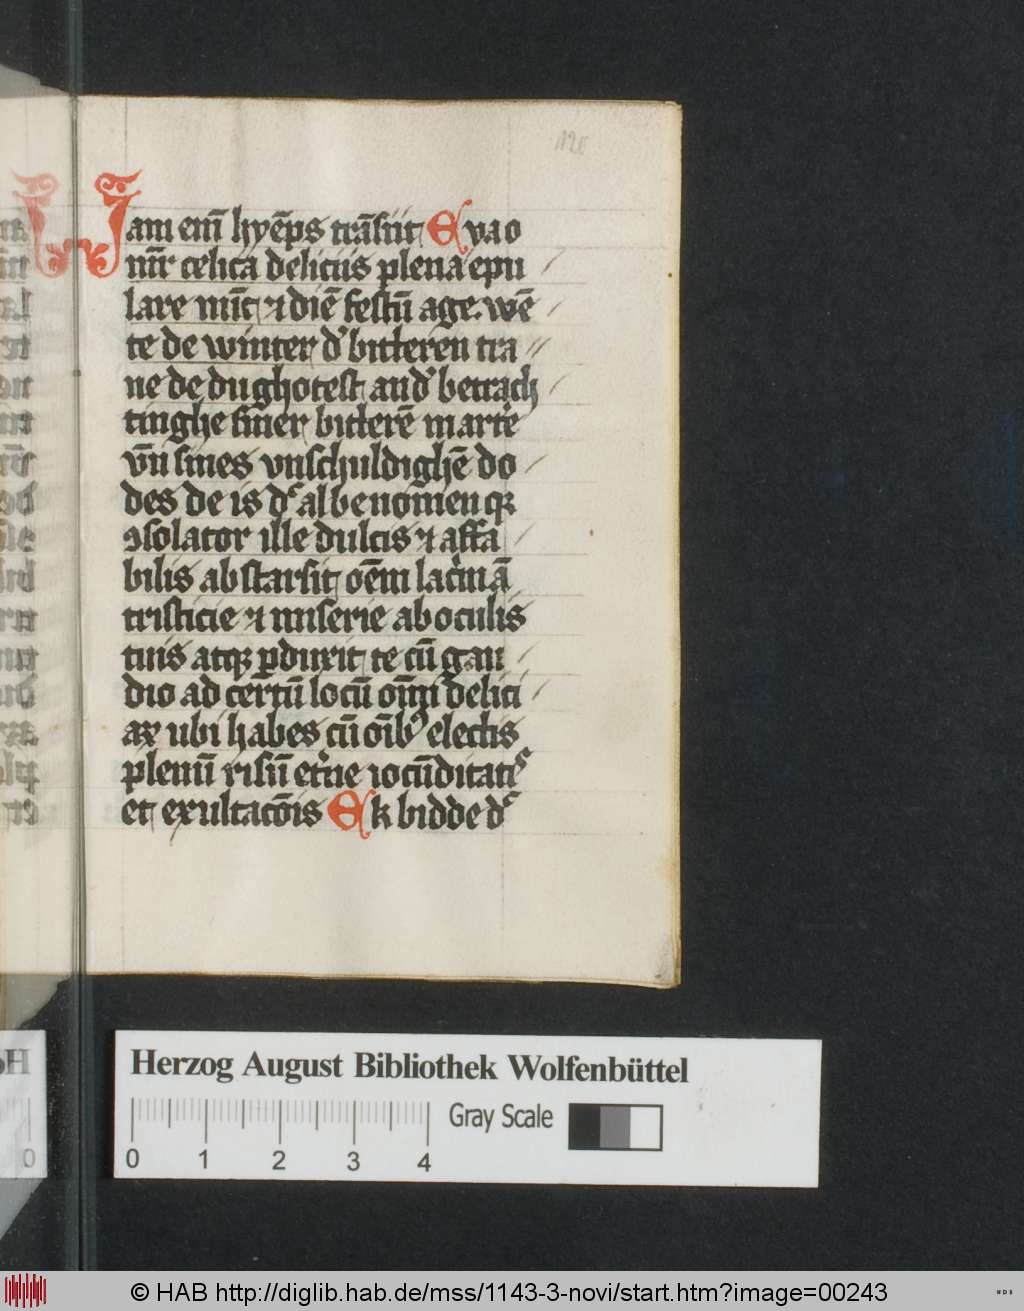 120
Jam em̄ hyēps trāsiit Eya o
nm̄r celica deliciis plena epu
lare mīt ⁊ diē festū age. wē
te de winter d' bitteren tra
ne de du ghotest an d' betrach
tinghe siner bitterē marte
vn̄ sines vnschuldighē do
des de is d' al benomen qꝛ
ꝯsolator ille dulcis ⁊ affa
bilis abstarsit oēm lac'mā
tristicie ⁊ miserie ab oculis
tuis atqꝫ ꝑduxit te cū gau
dio ad certū locū om̄i delici
aꝝ ubi habes cū oīb' electis
plenū risū et'ne iocūditat'
et exultacōis Ek bidde d'
Herzog August Bibliothek Wolfenbüttel
Gray Scale
0 1 2 3 4
© HAB http://diglib.hab.de/mss/1143-3-novi/start.htm?image=00243